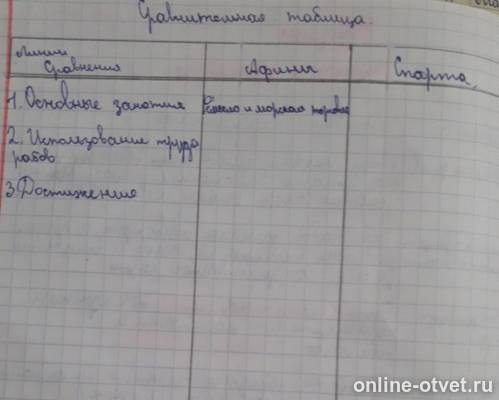 Сравнительная таблица.
Линии
Сравнения
Афины
Спарта
1. Основные занятия
Ремесло и морская торговля
2. Использование труда
рабов
3. Достижения
online-otvet.ru